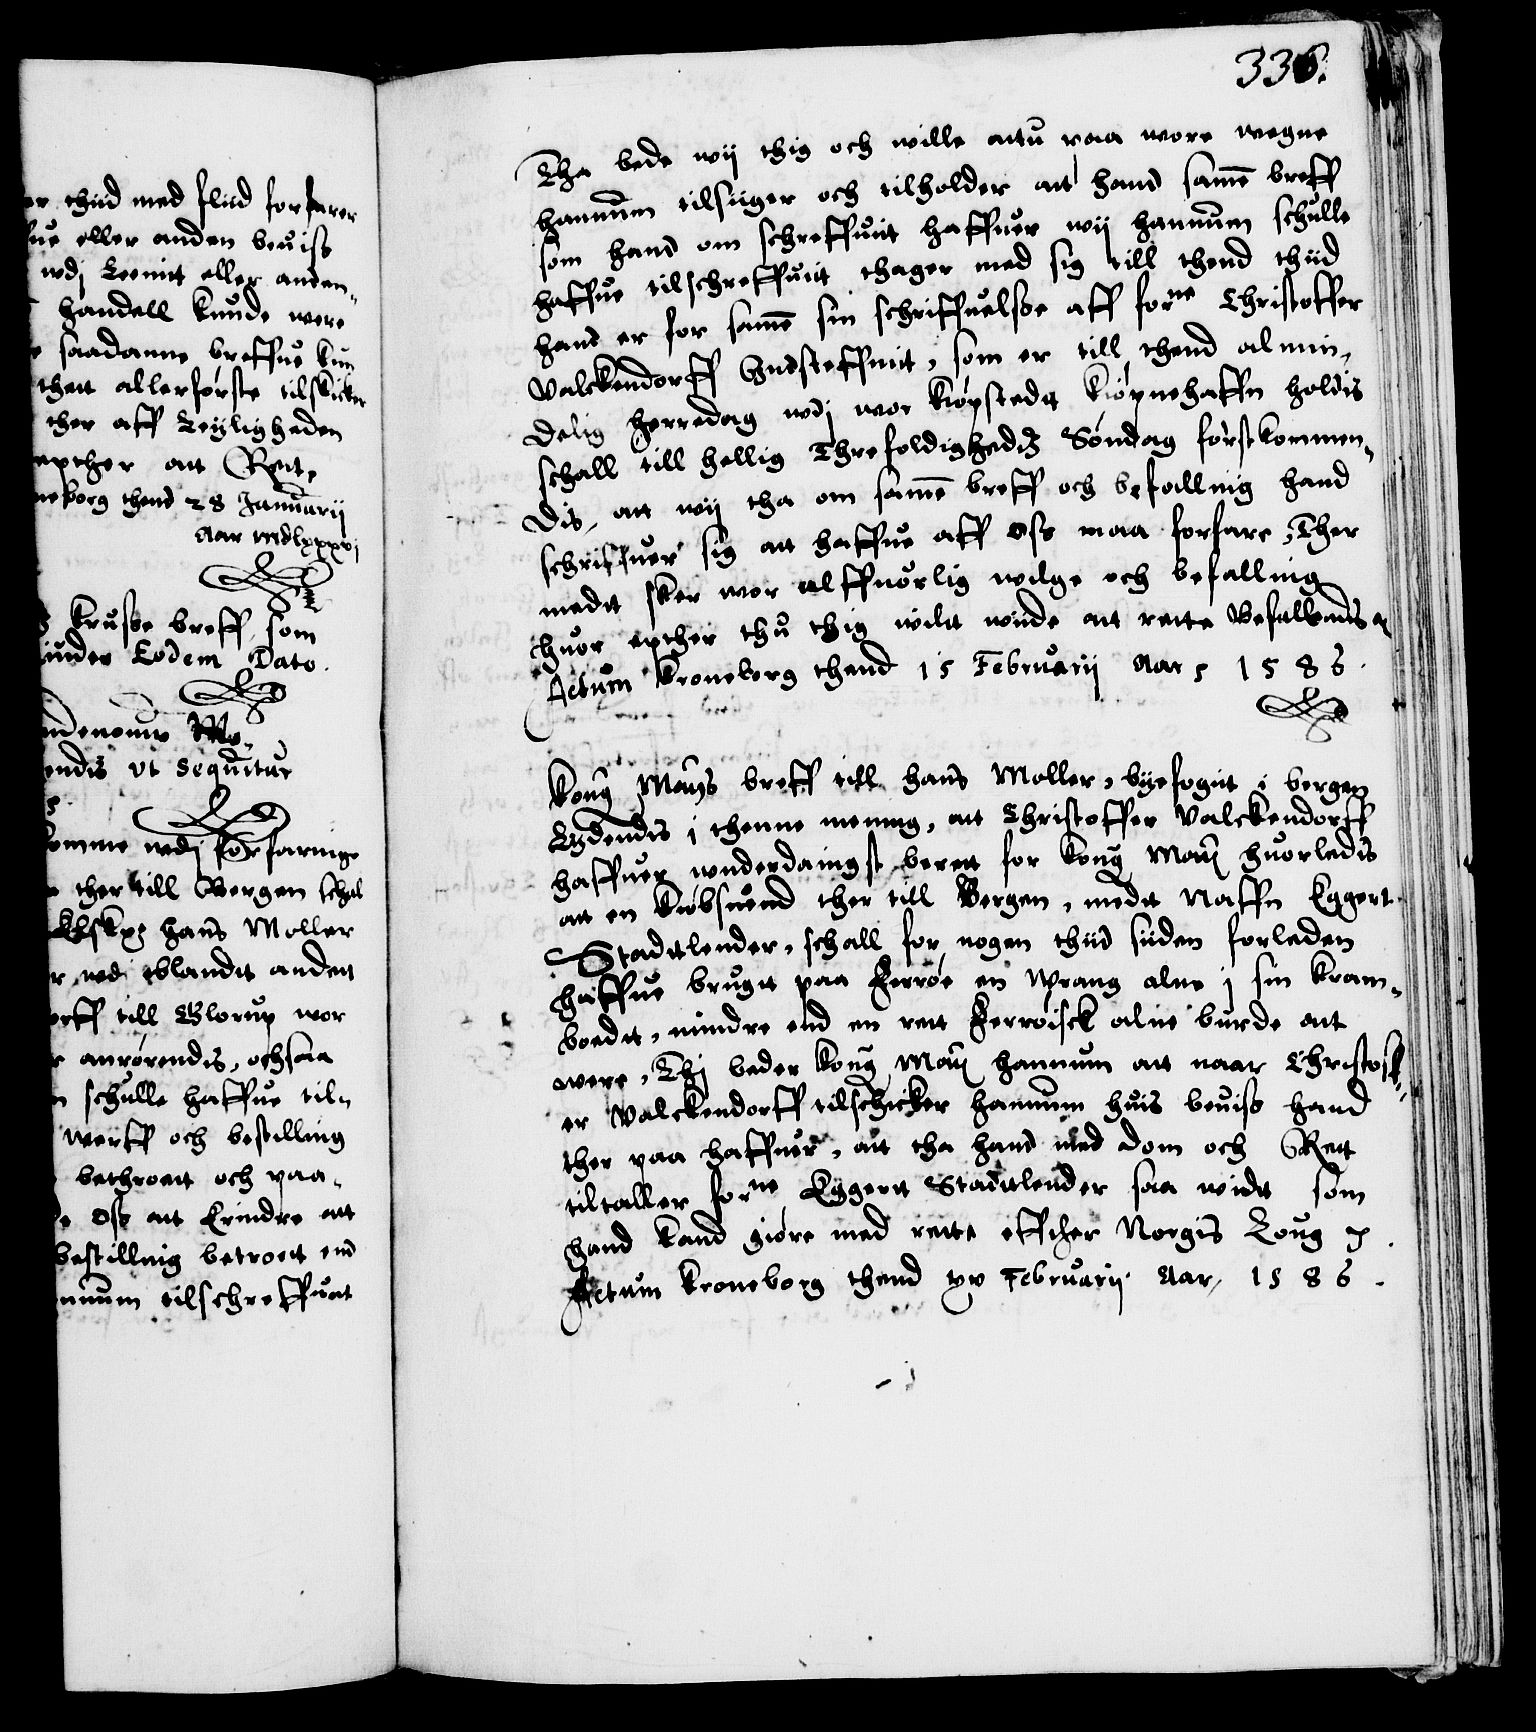 er thiid med fliid forfarer
fue eller anden beuiss
wdj Leenit eller anden
handell kunde were
saadanne breffue kun
thett allerførste tilskicker
ther aff Leyligheden
epther att Rette
neborg thend 28 Januarij
Aar mdlxxxvj
kruse breff som
under Eodem Dato.
endis vt Sequitur
komme wdj forfaringe
ther till Bergen schal
hans Moller
r wdj iblandt andett
orff till Glorup wor
r anrørendis, ochsaa
n schulle haffue til
werff och bestilling
bethroett och paa
de Oss att Erindre att
bestilling betroett end
annum tilschreffuit
336.
Tha bede wij thig och wille attu paa wore wegne
hannum tilsiiger och tilholder att hand same breff
som hand om schreffuit haffuer wij hannum schulle
haffue tilschreffuit thager med sig till thend thiid
hand er for same sin schriffuelsse aff forne Christoffer
Valckendorff Indsteffnit, som er till thend almin
delig herredag wdj wor kiøpstedt kiøpnehaffn holdis
schall till hellig Threfoldigheds Søndag førstkommen
dis, att wij tha om same breff och befalling hand
schriffuer sig att haffue aff Oss maa forfare, Ther
medt sker wor alffuorlig wilge och befalling
huor epther thu thig wilt wiide att rette Befallendis
Actum Kroneborg thend 15 Februarij Aar 1586.
Kong Mayts breff till hans Moller, byefogit i bergen
Lydendis i thenne mening, att Christoffer Valckendorff
haffuer wnderdanigst berett for kong Matt huorledis
att en kiøbsuend ther till Bergen, medt Naffn Eggert
Stadtlender, schall for nogen thiid siiden forleden
haffue brugt paa Ferrøe en wrang alne i sin kram
boedt, mindre end en rett Ferroisck alne burde att
were, Thj beder kong Matt hannum att naar Christoff
er Valckendorff tilschicker hannum huis beuiss hand
ther paa haffuer, att tha hand med dom och Rett
tiltaller forne Eggert Stadtlender saa widt som
hand kand giøre med rette effther Norgis Loug
Actum Kroneborg thend xv Februarij Aar, 1586.